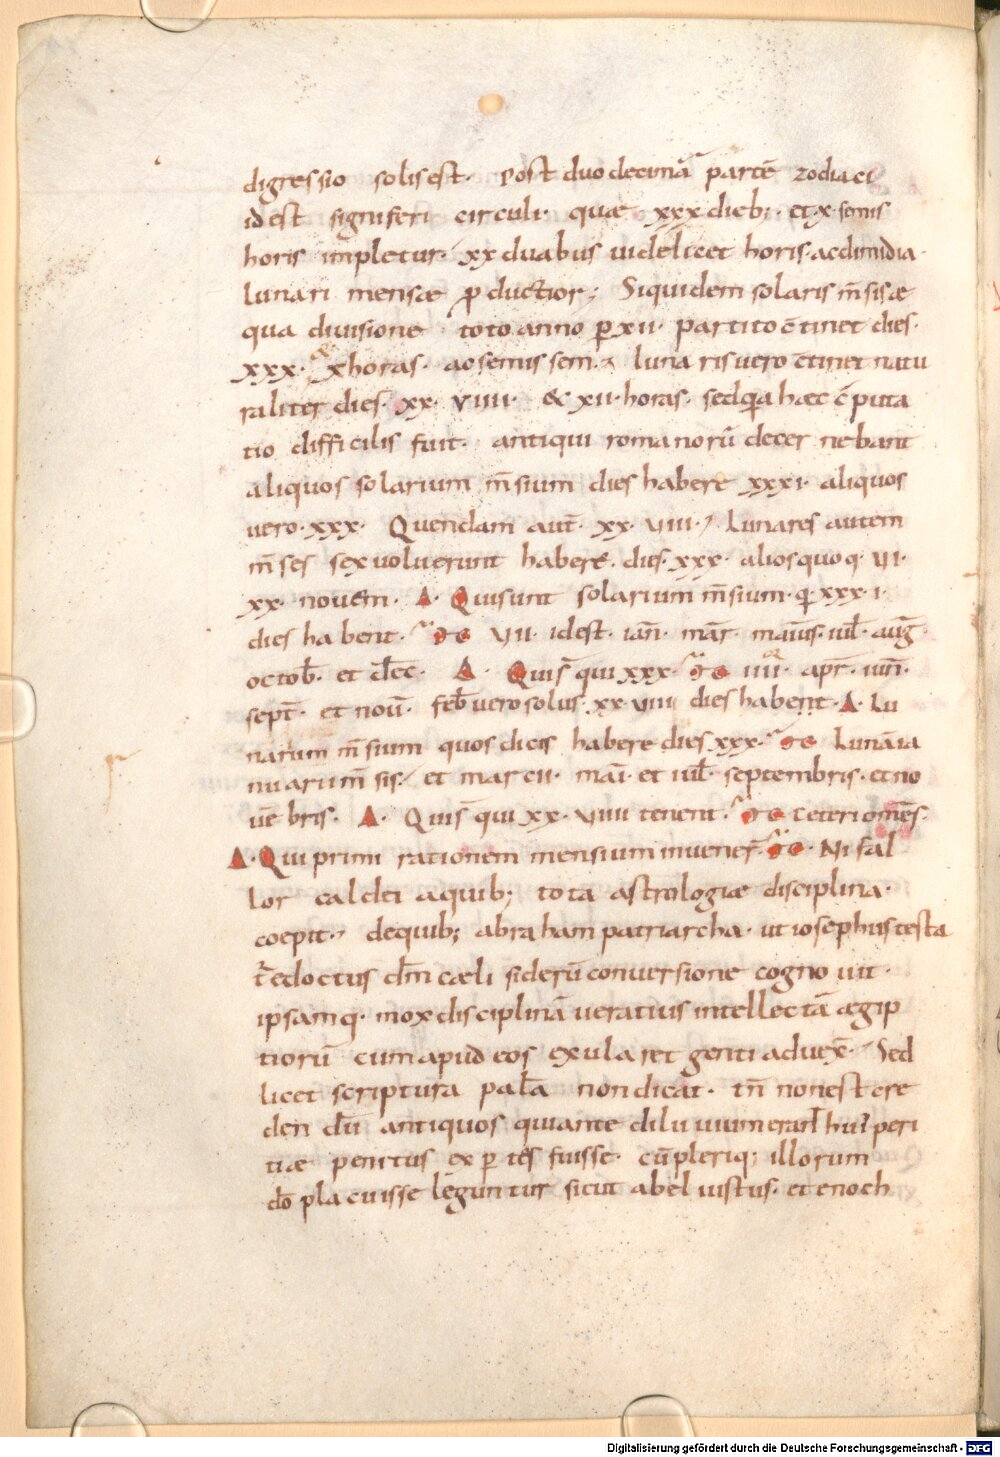 digressio solis est. Post duodecimā partē zodiaci
id est signiferi circuli. quae xxx dieb; et x semis
horis impletur. xx duabus uidelicet horis. ac dimidia.
lunari mensae ꝓductior; Siquidem solaris m̄sis ae
qua diuisione toto anno ꝑ xii. partito c̄tinet dies.
xxx. xhoras. ac semissem. lunaris uero c̄tinet natu
raliter dies. xx. viiii. & xii. horas. sed quia haec c̄puta
tio difficilis fuit. antiqui romanorū decernebant
aliquos solarium m̄sium dies habere xxxi. aliquos
uero. xxx. Quendam aut̄. xx. viii. Lunares autem
m̄ses sex uoluerunt habere. dies. xxx. alios quoq. vi.
xx. nouem. Δ. Qui sunt solarium m̄sium. q̄ xxxi.
dies habent. vii. id est. ian̄. mār. maius. iul̄. auḡ.
octob̄. et dēc. Δ. Quis qui xxx. iiii. apr̄. iun̄.
sept̄. et nou̅. feb̄ uero solus. xx. viii dies habent. Δ. Lu
narum m̄sium quos dicis habere dies xxx. Luna ia
nuarii m̄sis. et marcii. mai. et iul̄. septembris. et no
uē bris. Δ. Quis qui xx. viiii tenent. ceteri omēs.
Δ. Qui primi rationem mensium inuener̄. Ni fal
lor caldei a quib; tota astrologiae disciplina.
coepit. de quib; abraham patriarcha. ut iosephus testa
t̄ edoctus dm̄ caeli siderū conuersione cognouit.
ipsamq. mox disciplinā ueratius intellectā aegip
tiorū cum apud eos exularet genti aduex̄. Sed
licet scriptura palā non dicat. tn̄ non est cre
dendū antiquos qui ante diluuium erant hui' peri
tiae penitus exꝑtes fuisse. cū pleriq; illorum
dō placuisse leguntur sicut abel iustus. et enoch
Digitalisierung gefördert durch die Deutsche Forschungsgemeinschaft - DFG